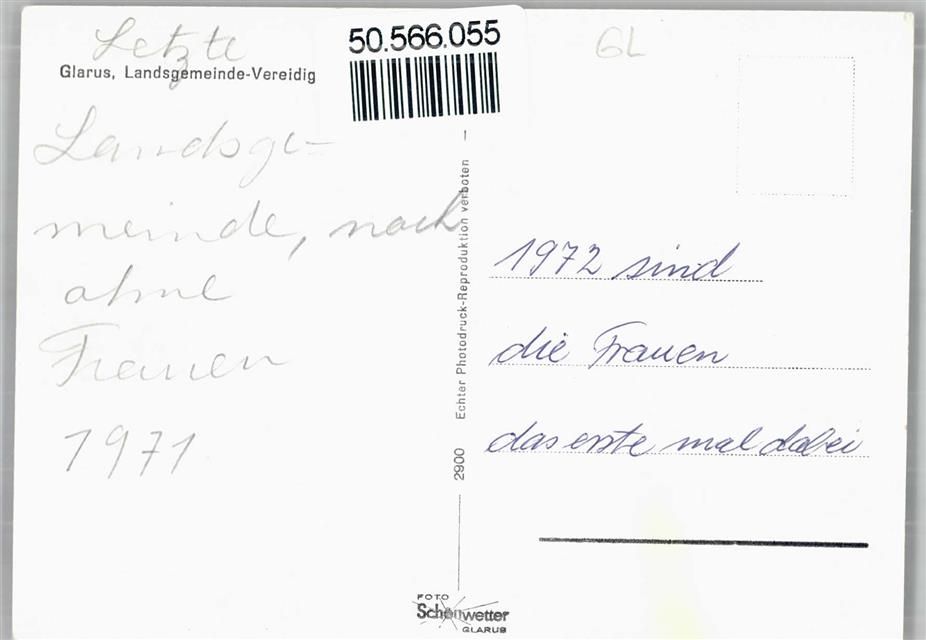 50.566.055
GL
Letzte
Glarus, Landsgemeinde-Vereidig
Landsge-
meinde, noch
ohne
Frauen
1971
2900 Echter Photodruck-Reproduktion verboten
1972 sind
die Frauen
das erste mal dabei
FOTO
Schönwetter
GLARUS